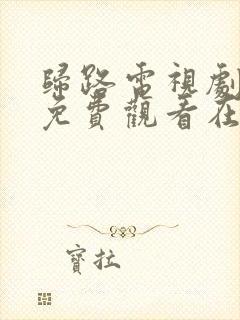 歸路電視劇
免費觀看在
寶拉